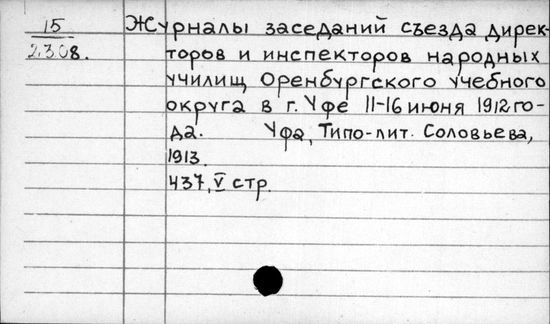 15
2308.
Журналы заседаний съезда дирек-
торов и инспекторов народных
училищ Оренбургского учебного
округа в г. Уфе 11-16 июня 1912 го-
да. Уфа, Типо-лит. Соловьева,
1913.
437, V стр.